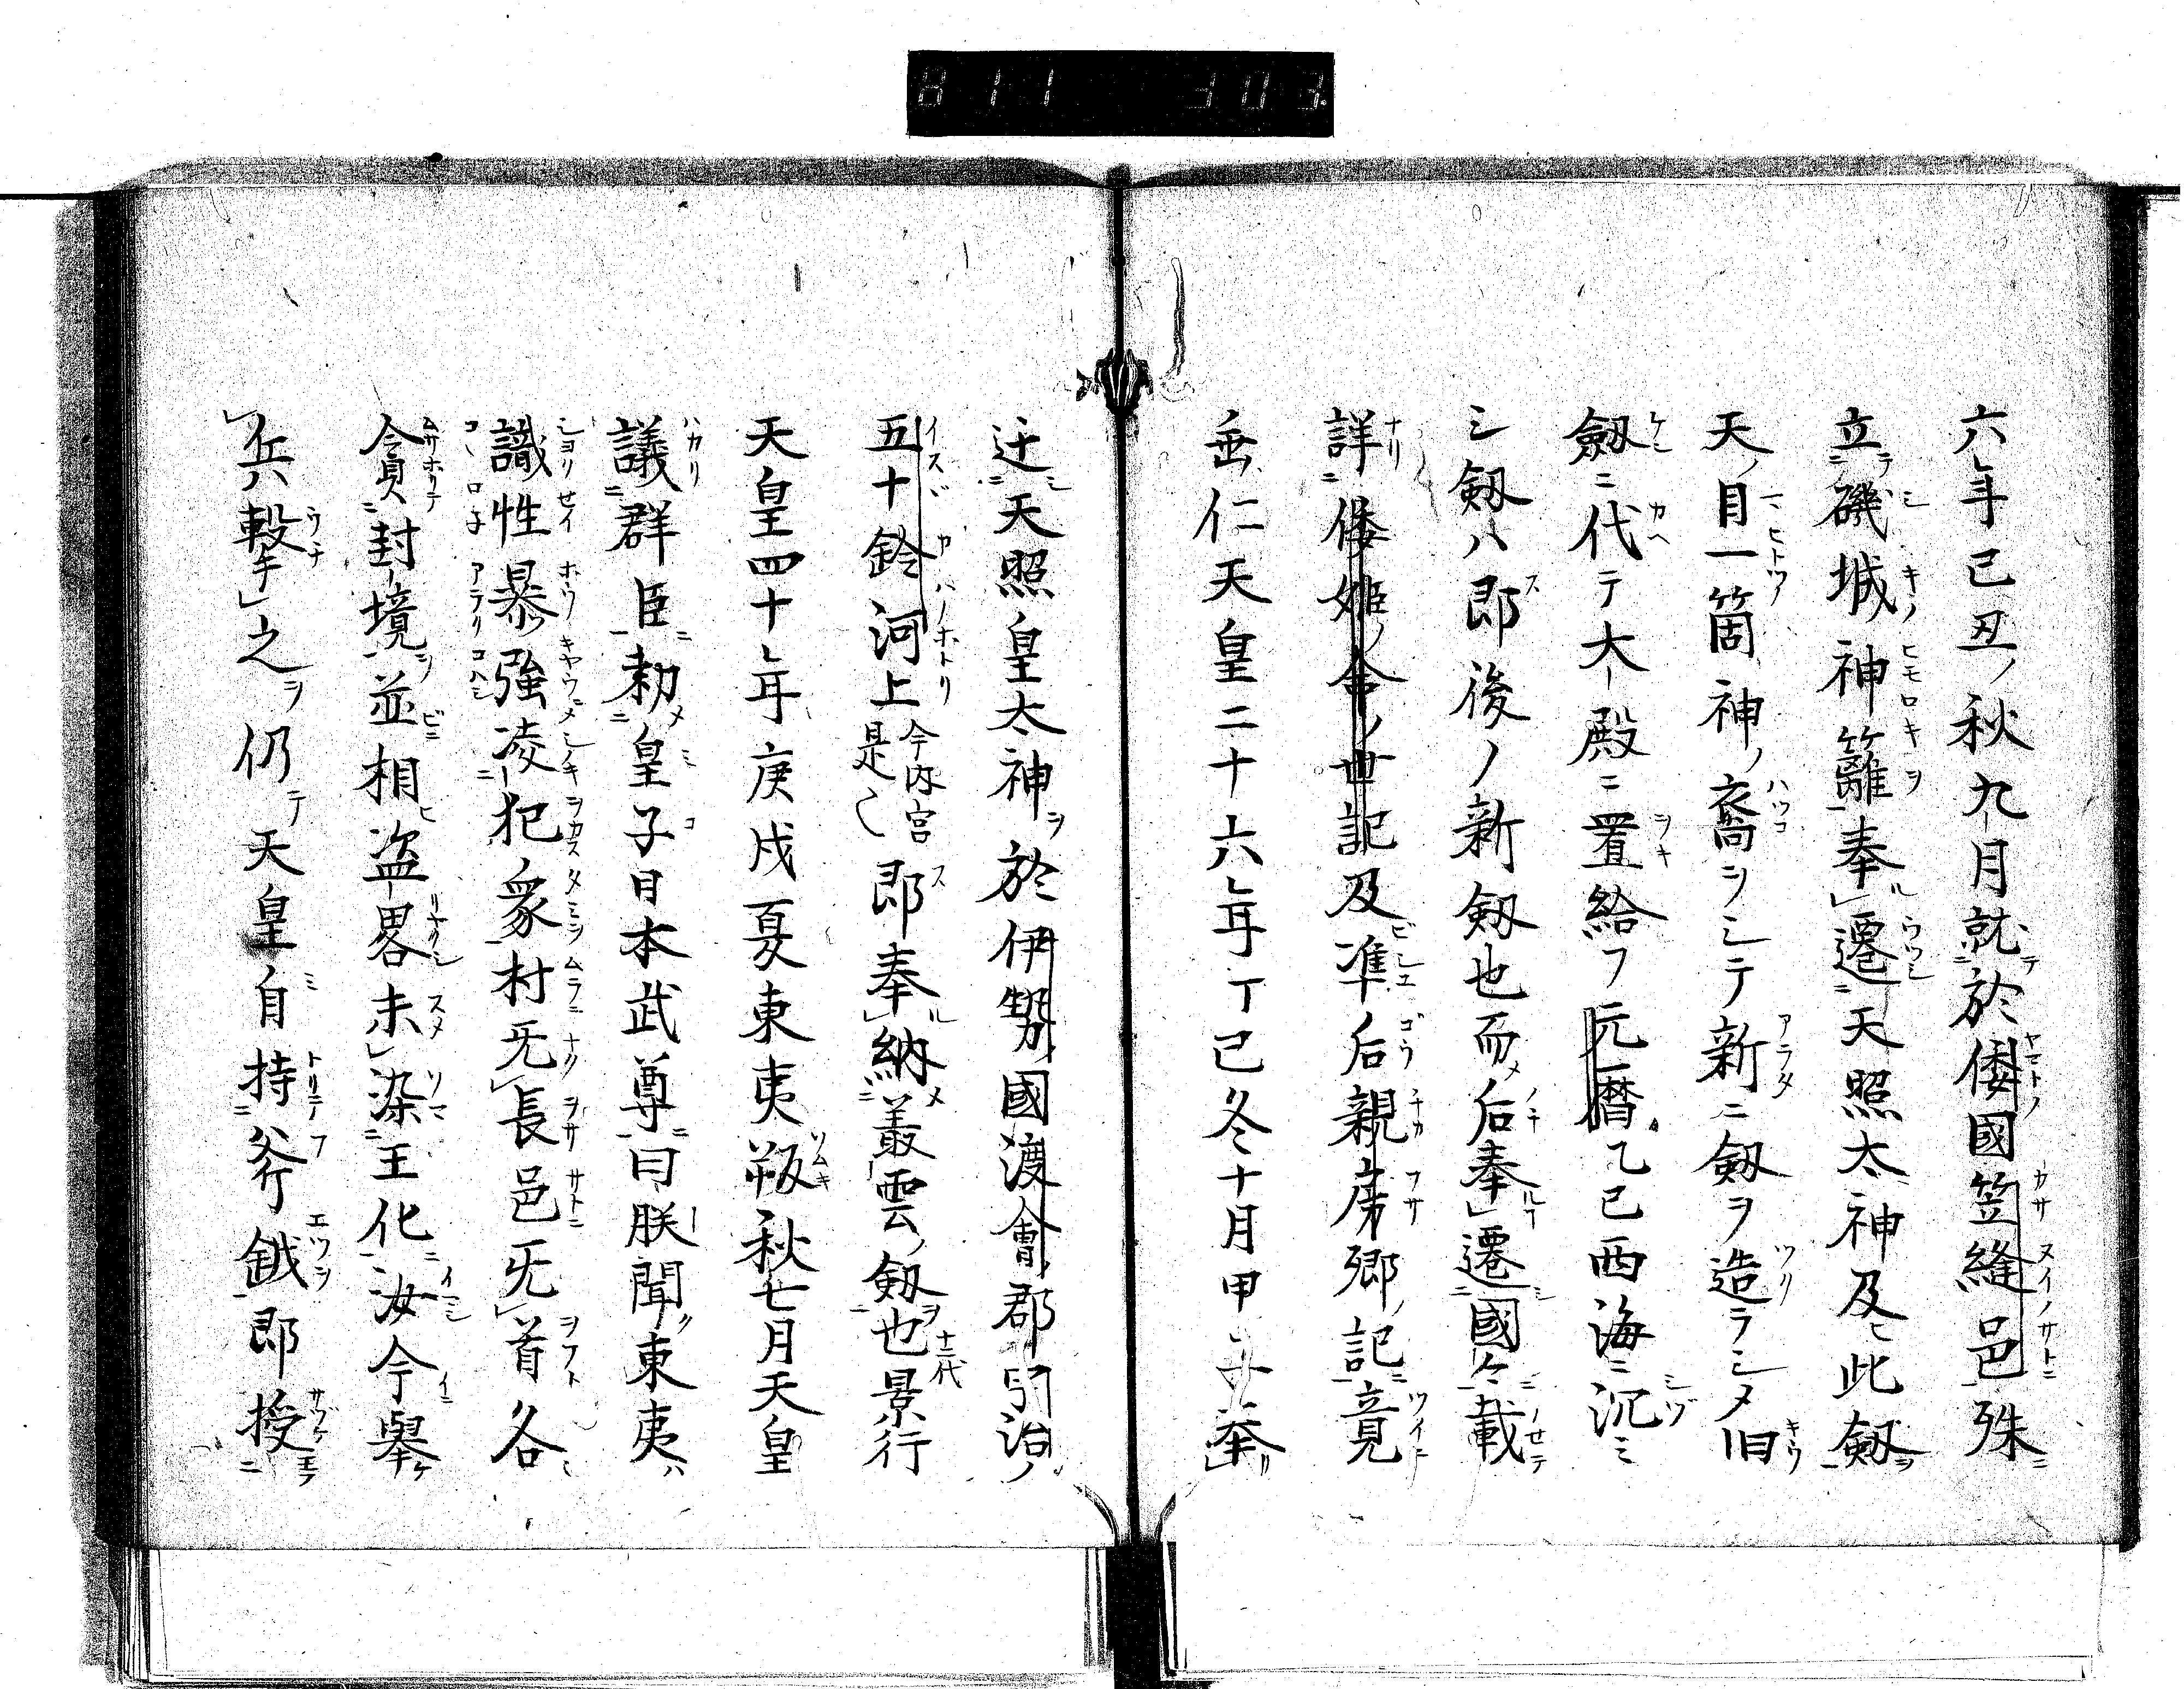 六年己丑ノ秋九月就テ於倭國笠縫邑殊ニ
立テ磯城神籬奉ル遷天照太神及ヒ此劔ヲ
天ノ目一箇神ノ裔ヲシテ新ニ劔ヲ造ラシメ旧
劔ニ代テ大殿ニ置給フ元暦乙巳西海ニ沉ミ
シ劔ハ即後ノ新劔也而メ后奉ルヿ遷シ國々ニ載
詳ナリ倭姫ノ命ノ世記及準后親房郷ノ記ニ竟
垂仁天皇二十六年丁巳冬十月甲子奉リ
迁シ天照皇太神ヲ於伊勢國渡會郡宇治ノ
五十鈴河上今内宮是也即奉ル納メ叢雲ノ劔ヲ也十二代景行
天皇四十年庚戌夏東夷叛秋七月天皇
議群臣ニ勅メ皇子日本武尊ニ曰朕聞ク東夷ハ
識性暴強凌犯衆村旡長邑旡首各
貪封境ヲ並相盗畧未染王化ニ汝今舉ケ
兵撃之ヲ仍テ天皇自持斧鉞即授